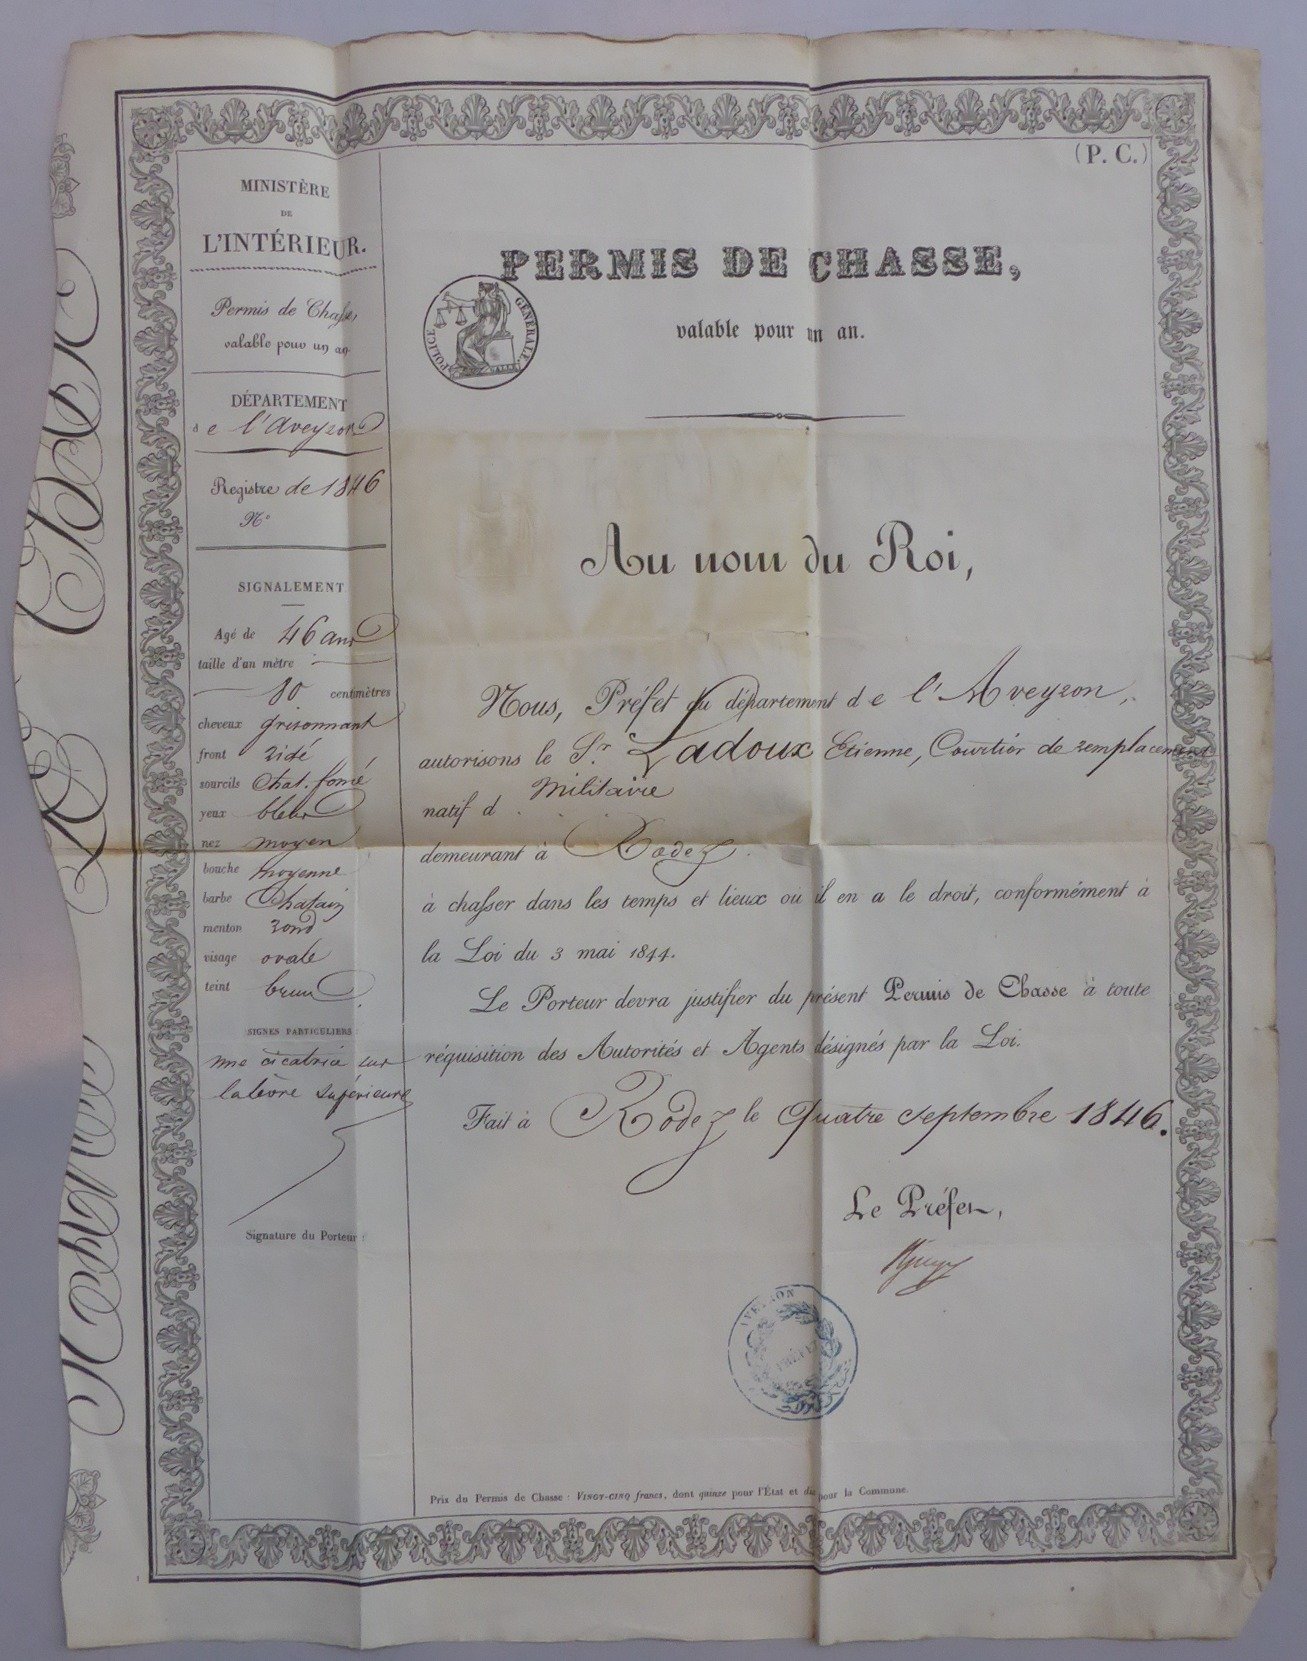 MINISTÈRE
DE
L'INTÉRIEUR.
Permis de Chasse,
valable pour un an.
DÉPARTEMENT
de l'Aveyron
Registre de 1846
N°
SIGNALEMENT
Agé de 46 ans
taille d'un mètre
80 centimètres
cheveux grisonnant
front ridé
sourcils Chat. foncé
yeux bleus
nez moyen
bouche moyenne
barbe Chatain
menton rond
visage ovale
teint brun
SIGNES PARTICULIERS :
une cicatrice sur
la levre supérieure
Signature du Porteur :
(P. C.)
PERMIS DE CHASSE,
valable pour un an.
POLICE GÉNÉRALE
Au nom du Roi,
Nous, Préfet du département de l'Aveyron,
autorisons le Sr. Ladoux Etienne, Courtier de remplacement
Militaire
natif d
demeurant à Rodez
à chasser dans les temps et lieux où il en a le droit, conformément à
la Loi du 3 mai 1844.
Le Porteur devra justifier du présent Permis de Chasse à toute
réquisition des Autorités et Agents désignés par la Loi.
Fait à Rodez le quatre septembre 1846.
Le Préfet,
AVEYRON
PRÉFET
Prix du Permis de Chasse : VINGT-CINQ francs, dont quinze pour l'État et dix pour la Commune.